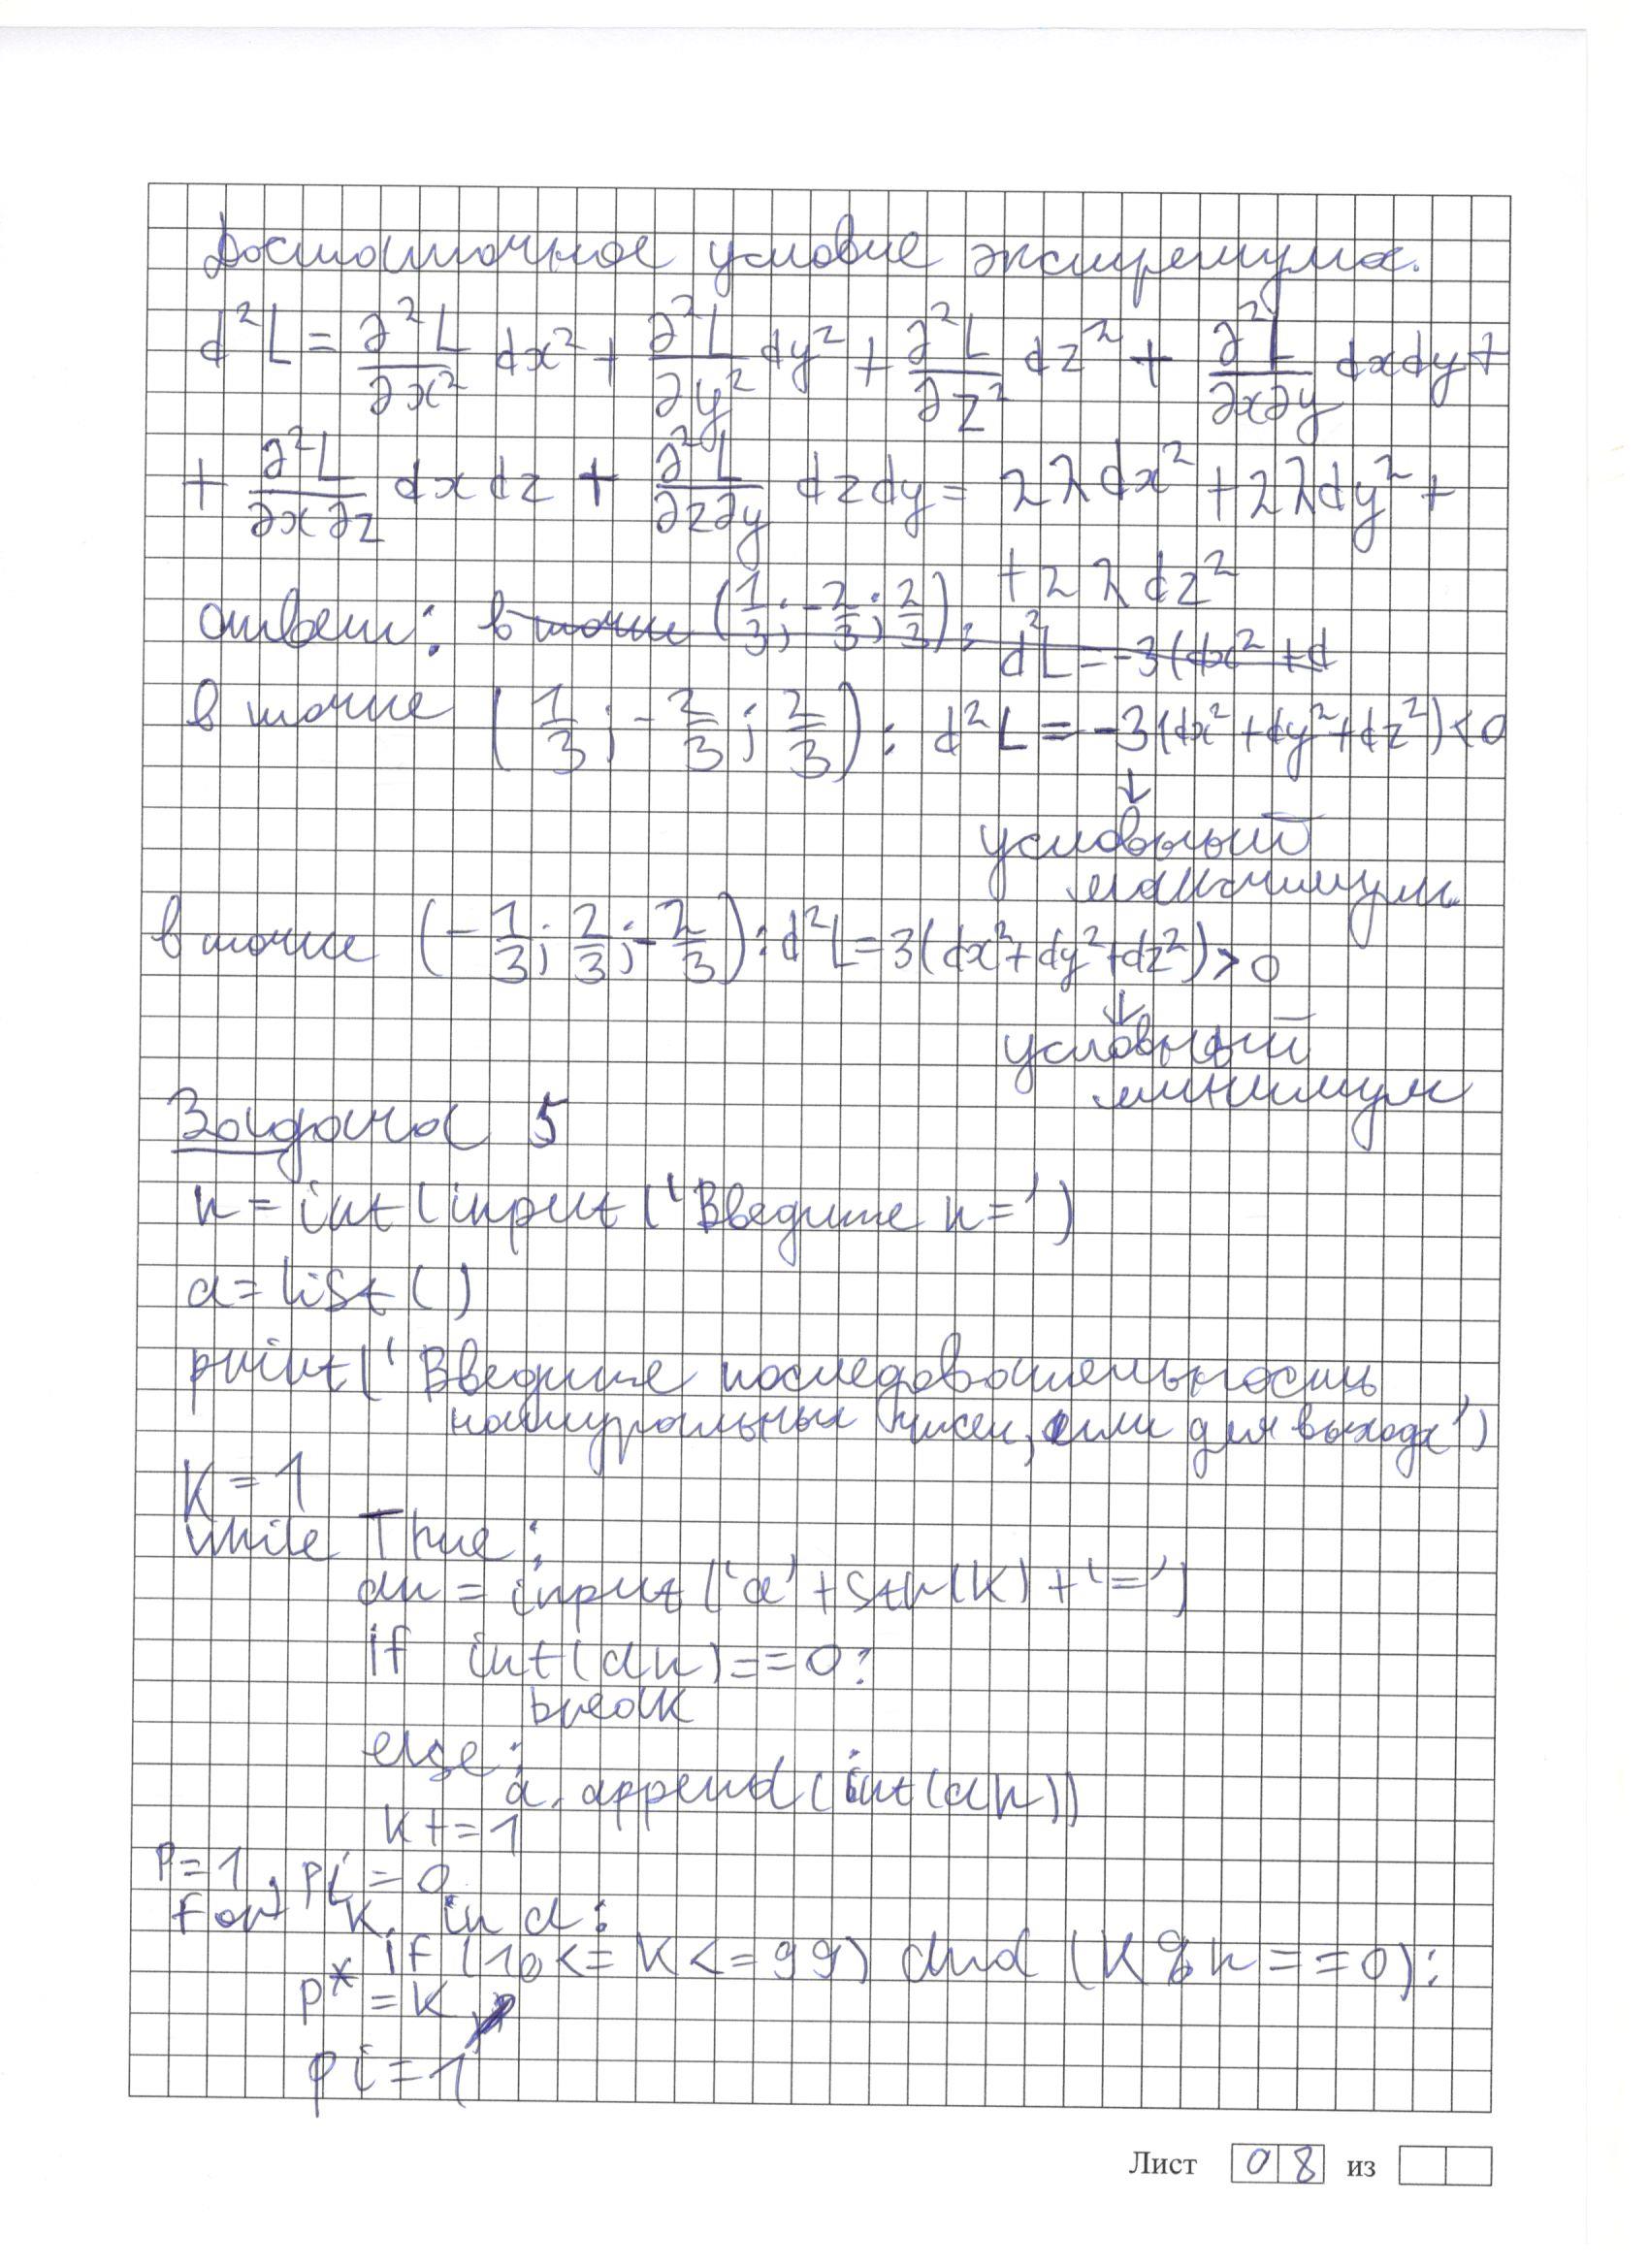 Достаточное условие экстремума.
d²L = ∂²L/∂x² dx² + ∂²L/∂y² dy² + ∂²L/∂z² dz² + ∂²L/∂x∂y dxdy +
+ ∂²L/∂x∂z dxdz + ∂²L/∂z∂y dzdy = 2λdx² + 2λdy² +
+ 2λdz²
ответ: в точке (1/3; -2/3; 2/3): d²L = -3(dx² + d
в точке (1/3; -2/3; 2/3): d²L = -3(dx² + dy² + dz²) < 0
↓
условный
максимум
в точке (-1/3; 2/3; -2/3): d²L = 3(dx² + dy² + dz²) > 0
↓
условный
минимум
Задача 5
n = int(input('Введите n=')
a = list()
print('Введите последовательность
натуральных чисел, или для выхода')
K = 1
while True:
an = input('a' + str(K) + '=')
if int(an) == 0:
break
else:
a.append(int(an))
K += 1
P = 1, pi = 0
For K in a:
if (10 <= K <= 99) and (K % n == 0):
p* = K
pi = 1
Лист 08 из